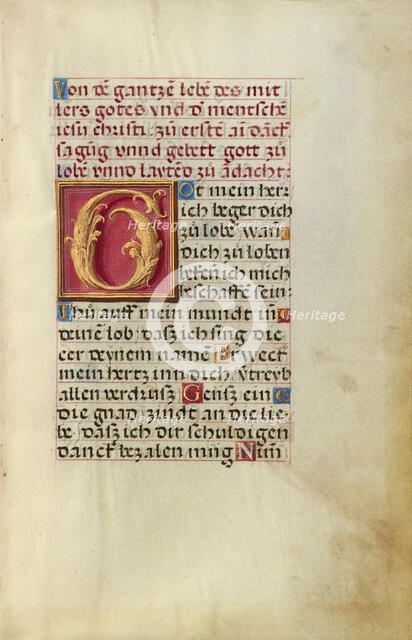 Von dē gantzē lebē des mit
lers gotes vnd d᷑ mentschē
iesu christi zů erstē ain danck
sagūg vnnd gebett gott zů
lobē vnnd layteō zů adacht:
Got mein herr
ich beger dich
zů lobē wañ
dich zů loben
bekēn ich mich
beschaffē sein:
mein mundt in
deinē lob dasz ich sing die
eer deynem namē Erweck
mein hertz in dich v̄treyb
allen verdrusz Geusz ein
die gnad zindt an die lie-
be dasz ich dir schuldigen
danck bezalen müg Nim
Heritage
Heritage
Heritage